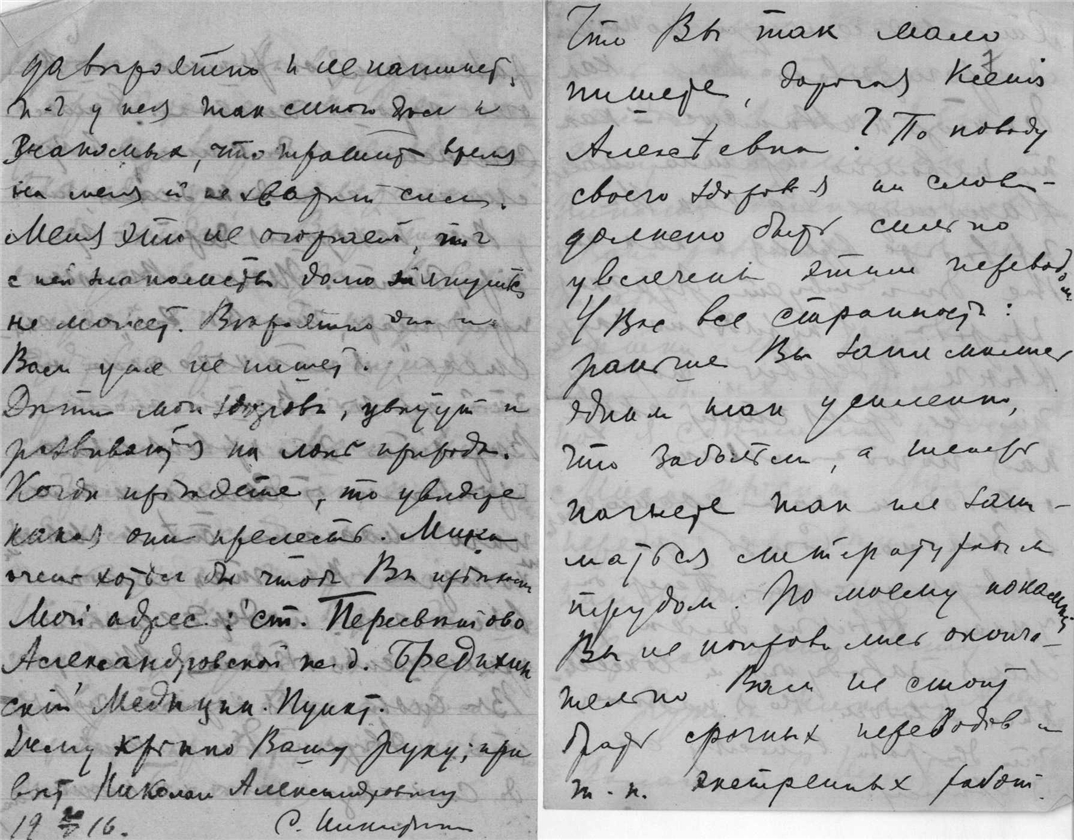 да вероятно и не напишет,
п. ч. у нея так много дел и
знакомых, что тратить время
на меня и не хватит сил.
Меня это не огорчает, т. к.
с ней знакомство долго тянуться
не может. Вероятно она и
Вам уже не пишет.
Дети мои здоровы, цветут и
развиваются на лоне природы.
Когда приедете, то увидите
какая они прелесть.
очень хотел бы чтобы Вы приехали
Мой адрес: ст. Пересветово
Александровской ж. д. Бредихин
ский Медицин. Пункт.
Жму крепко Вашу руку; при
вет Николаю Александровичу
19 16. С. Никитин
Что Вы так мало
7
пишете, дорогая Ксенія
Алексѣевна? По поводу
своего здоровья ни слова –
должно быть сильно
увлечены этим переводом.
У Вас все странности:
раньше Вы занимались
ядами так усиленно,
что заболели, а теперь
начнете так же зани-
маться литературным
трудом. По моему пока
Вы не поправились оконча-
тельно Вам не стоит
брать срочных переводов и
т. п. экстренных работ.